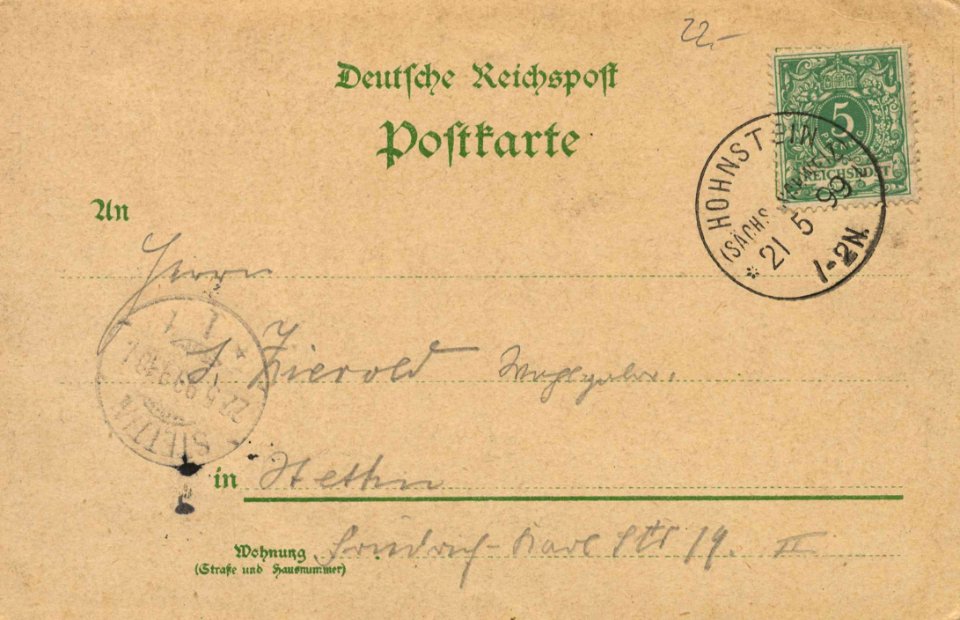 22.-
Deutsche Reichspost
Postkarte
5
REICHSPOST
HOHNSTEIN
(SÄCHS.
* 21 5 99
1-2N.
An
Herrn
Zierold
STETTIN
22.5.99
1
in Stettin
Wohnung Friedrich-Karl Str 19. II
(Straße und Hausnummer)